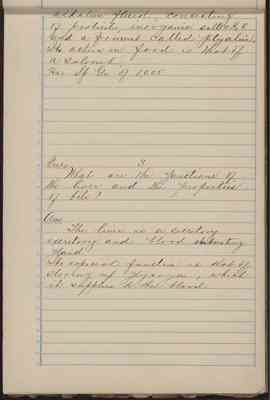 alkaline fluid, consisting
of proteids, inorganic salts &c
and a ferment called ptyalin.
Its action on food is that of
a solvent.
Has Sp. Gr. of 1005
Ques. 3.
What are the functions of
the liver and the properties
of bile?
Ans
The liver is a secretory
secretory and blood
gland.
Its especial function is that of
storing up glycogen, which
it supplies to the blood